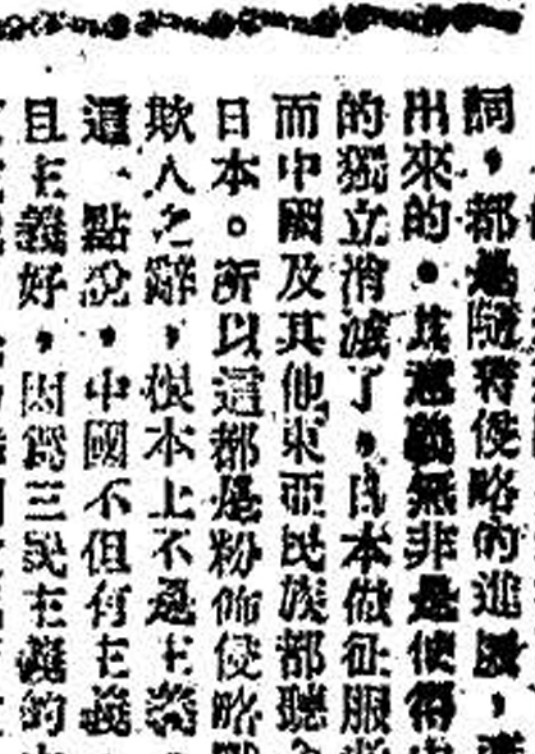 詞，都是隨着侵略的進展，
出來的。其意義無非是使得
的獨立消滅了，日本做征服
而中國及其他東亞民族都聽
日本。所以這都是粉飾侵略
欺人之辭，根本上不是主義
這一點說，中國不但有主義
且主義好，因爲三民主義的